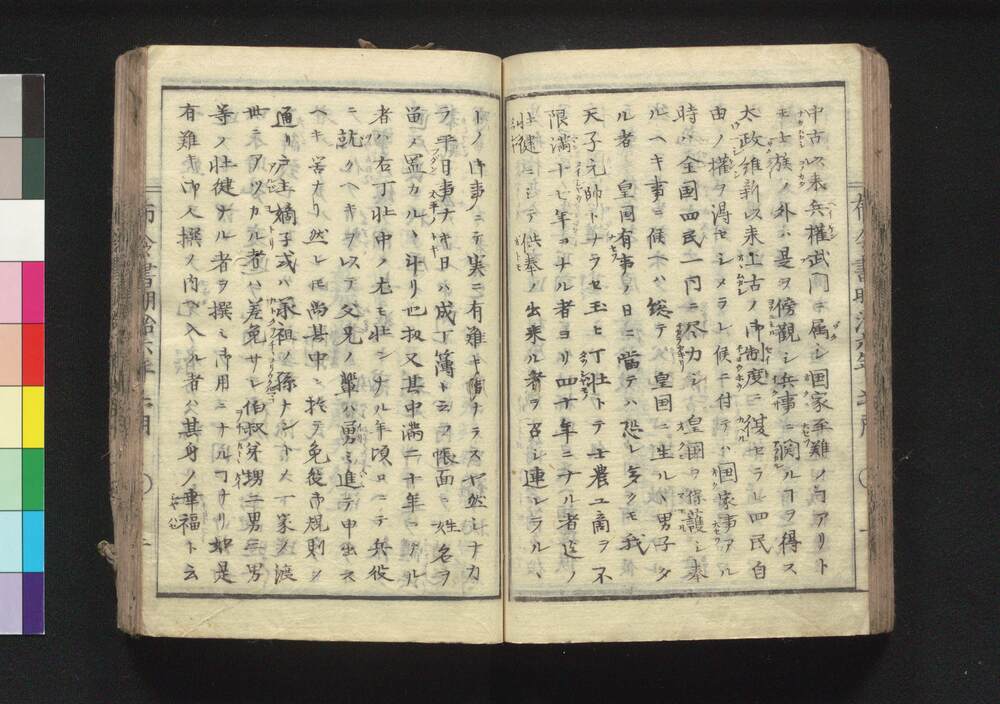 中古以来兵権武門ニ属シ国家至難ノ寸アリト
モ士族ノ外ハ是ヲ傍観シ兵事ニ関ルヿヲ得ス
太政維新以来上古ノ御制度ニ復セラレ四民自
由ノ権ヲ得セシメラレ候ニ付テハ国家事アル
時ハ全国四民一同ニ尽力シ皇国ヲ保護シ奉
ルヘキ事ニ候ヘハ総テ皇国ニ生ルヽ男子タ
ル者皇国有事ノ日ニ當テハ恐レ多クモ我
天子元帥トナラセ玉ヒ丁壮トテ士農工商ヲ不
限満十七年ヨナル者ヨリ四十年ニナル者迄ノ
壮健ニシテ供奉ノ出来ル者ヲ召シ連レラルヽ
ノ御事ニテ実ニ有難キ ナラスヤ然シナカ
ラ平日事ナキ日ハ成丁簿ト云フ帳面ニ姓名ヲ
留メ置カルヽ斗リ也扨又其中満二十年ニナル
者ハ右丁壮中ノ尤モ壮ンナル年頃ロニテ兵役
ニ就クヘキヲ以テ父兄ノ輩ハ勇ミ進テ申出ス
ヘキ筈ナリ然レ𪜈尚其中ニ於テ免役御規則ノ
通リ戸主嫡子或ハ承祖ノ孫ナントメ一家ノ渡
世ニアツカル者ハ差免サレ伯叔弟甥二男三男
等ノ壮健ナル者ヲ撰ミ御用ニナルヿナリ如是
有難キ御人撰ノ内ヘ入ル者ハ其身ノ幸福ト云
布令書明治六年二月
布令書明治六年二月